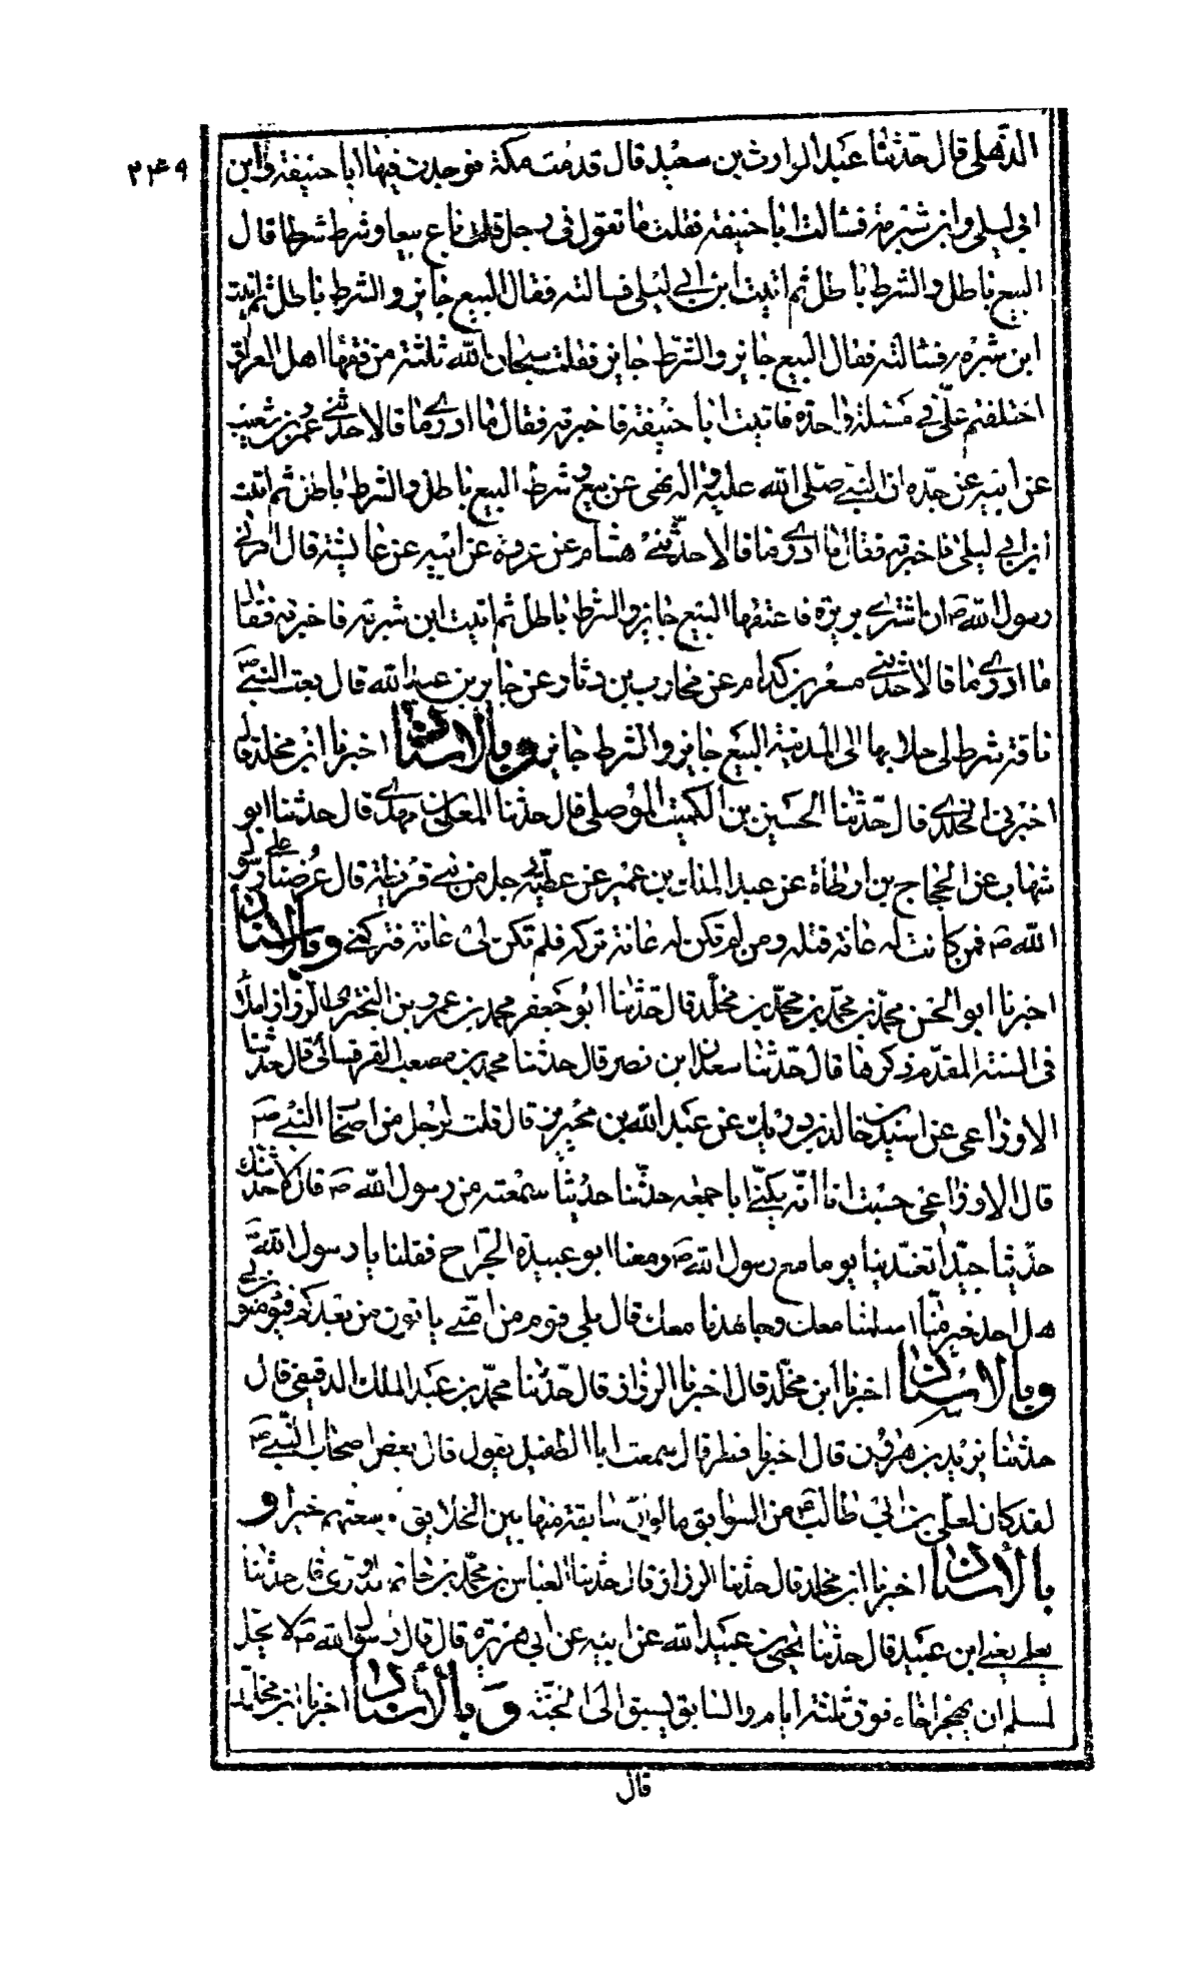 ۲۴۹
الذهلى قال حدثنا عبد الوارث بن سعيد قال قدمت مكة فوجدت فيها ابا حنيفة وابن
ابى ليلى وابن شبرمة فسالت ابا حنيفة فقلت ما تقول فى رجل باع بيعا وشرط شرطا قال
البيع باطل والشرط باطل ثم اتيت ابن ابى ليلى فسالته فقال البيع جايز والشرط باطل ثم اتيت
ابن شبرمه فسالته فقال البيع جايز والشرط جايز فقلت سبحان الله ثلثة من فقها اهل العراق
اختلفتم علىّ فى مسئلة واحدة فاتيت ابا حنيفة فاخبرته فقال ما ادرى ما قالا حدثنى عمرو بن شعيب
عن ابيه عن جده ان النبى صلى الله عليه واله نهى عن بيع وشرط البيع باطل والشرط باطل ثم اتيت
ابن ابى ليلى فاخبرته فقال ما ادرى ما قالا حدثنى هشام بن عروة عن ابيه عن عايشة قال امرنى
رسول الله ص ان اشترى بريرة فاعتقها البيع جايز والشرط باطل ثم اتيت ابن شبرمة فاخبرته فقال
ما ادرى ما قالا حدثنى مسعر بن كدام عن محارب بن دثار عن جابر بن عبد الله قال بعت النبى ص
ناقة شرط لى حلابها الى المدينة البيع جايز والشرط جايز وبالاسناد اخبرنا ابن مخلد قال
اخبرنى الخلدى قال حدثنا الحسين بن الكميت الموصلى قال حدثنا المعلى بن مهدى قال حدثنا ابو
شهاب عن الحجاج بن ارطاة عن عبد الملك بن عمير عن عطية رجل من بنى قريظة قال عرضنا على رسول
الله ص فمن كانت له عانة قتله ومن لم تكن له عانة تركه فلم تكن لى عانة فتركنى وبالاسناد
اخبرنا ابو الحسن محمد بن محمد بن محمد بن مخلد قال حدثنا ابو جعفر محمد بن عمرو بن البخترى الرزاز املاء
فى السنة المقدم ذكرها قال حدثنا سعدان بن نصر قال حدثنا محمد بن مصعب القرقسائى قال حدثنا
الاوزاعى عن اسيد بن خالد بن دريك عن عبد الله بن محيريز قال قلت لرجل من اصحاب النبى ص
قال الاوزاعى حسبت انا انه يكنى ابا جمعه حدثنا حديثا سمعته من رسول الله ص قال لاحدثنك
حديثا جيدا تغدينا يوما مع رسول الله ص ومعنا ابو عبيدة الجراح فقلنا يا رسول الله ص
هل احد خير منا اسلمنا معك وجاهدنا معك قال بلى قوم من امتى ياتون من بعدكم فيؤمنون بى
وبالاسناد اخبرنا ابن مخلد قال اخبرنا الرزاز قال حدثنا محمد بن عبد الملك الدقيقى قال
حدثنا يزيد بن هرون قال اخبرنا فطر قال سمعت ابا الطفيل يقول قال بعض اصحاب النبى ص
لقد كان لعلى بن ابى طالب ع من السوابق ما لو ان سابقة منها بين الخلايق لوسعتهم خيرا و
بالاسناد اخبرنا ابن مخلد قال حدثنا الرزاز قال حدثنا العباس بن محمد بن حاتم الدورى قال حدثنا
يعلى يعنى ابن عبيد قال حدثنا يحيى بن عبيد الله عن ابيه عن ابى هريرة قال قال رسول الله ص لا يحل
لمسلم ان يهجر اخاه فوق ثلثة ايام والسابق يسبق الى الجنة وبالاسناد اخبرنا ابن مخلد
قال